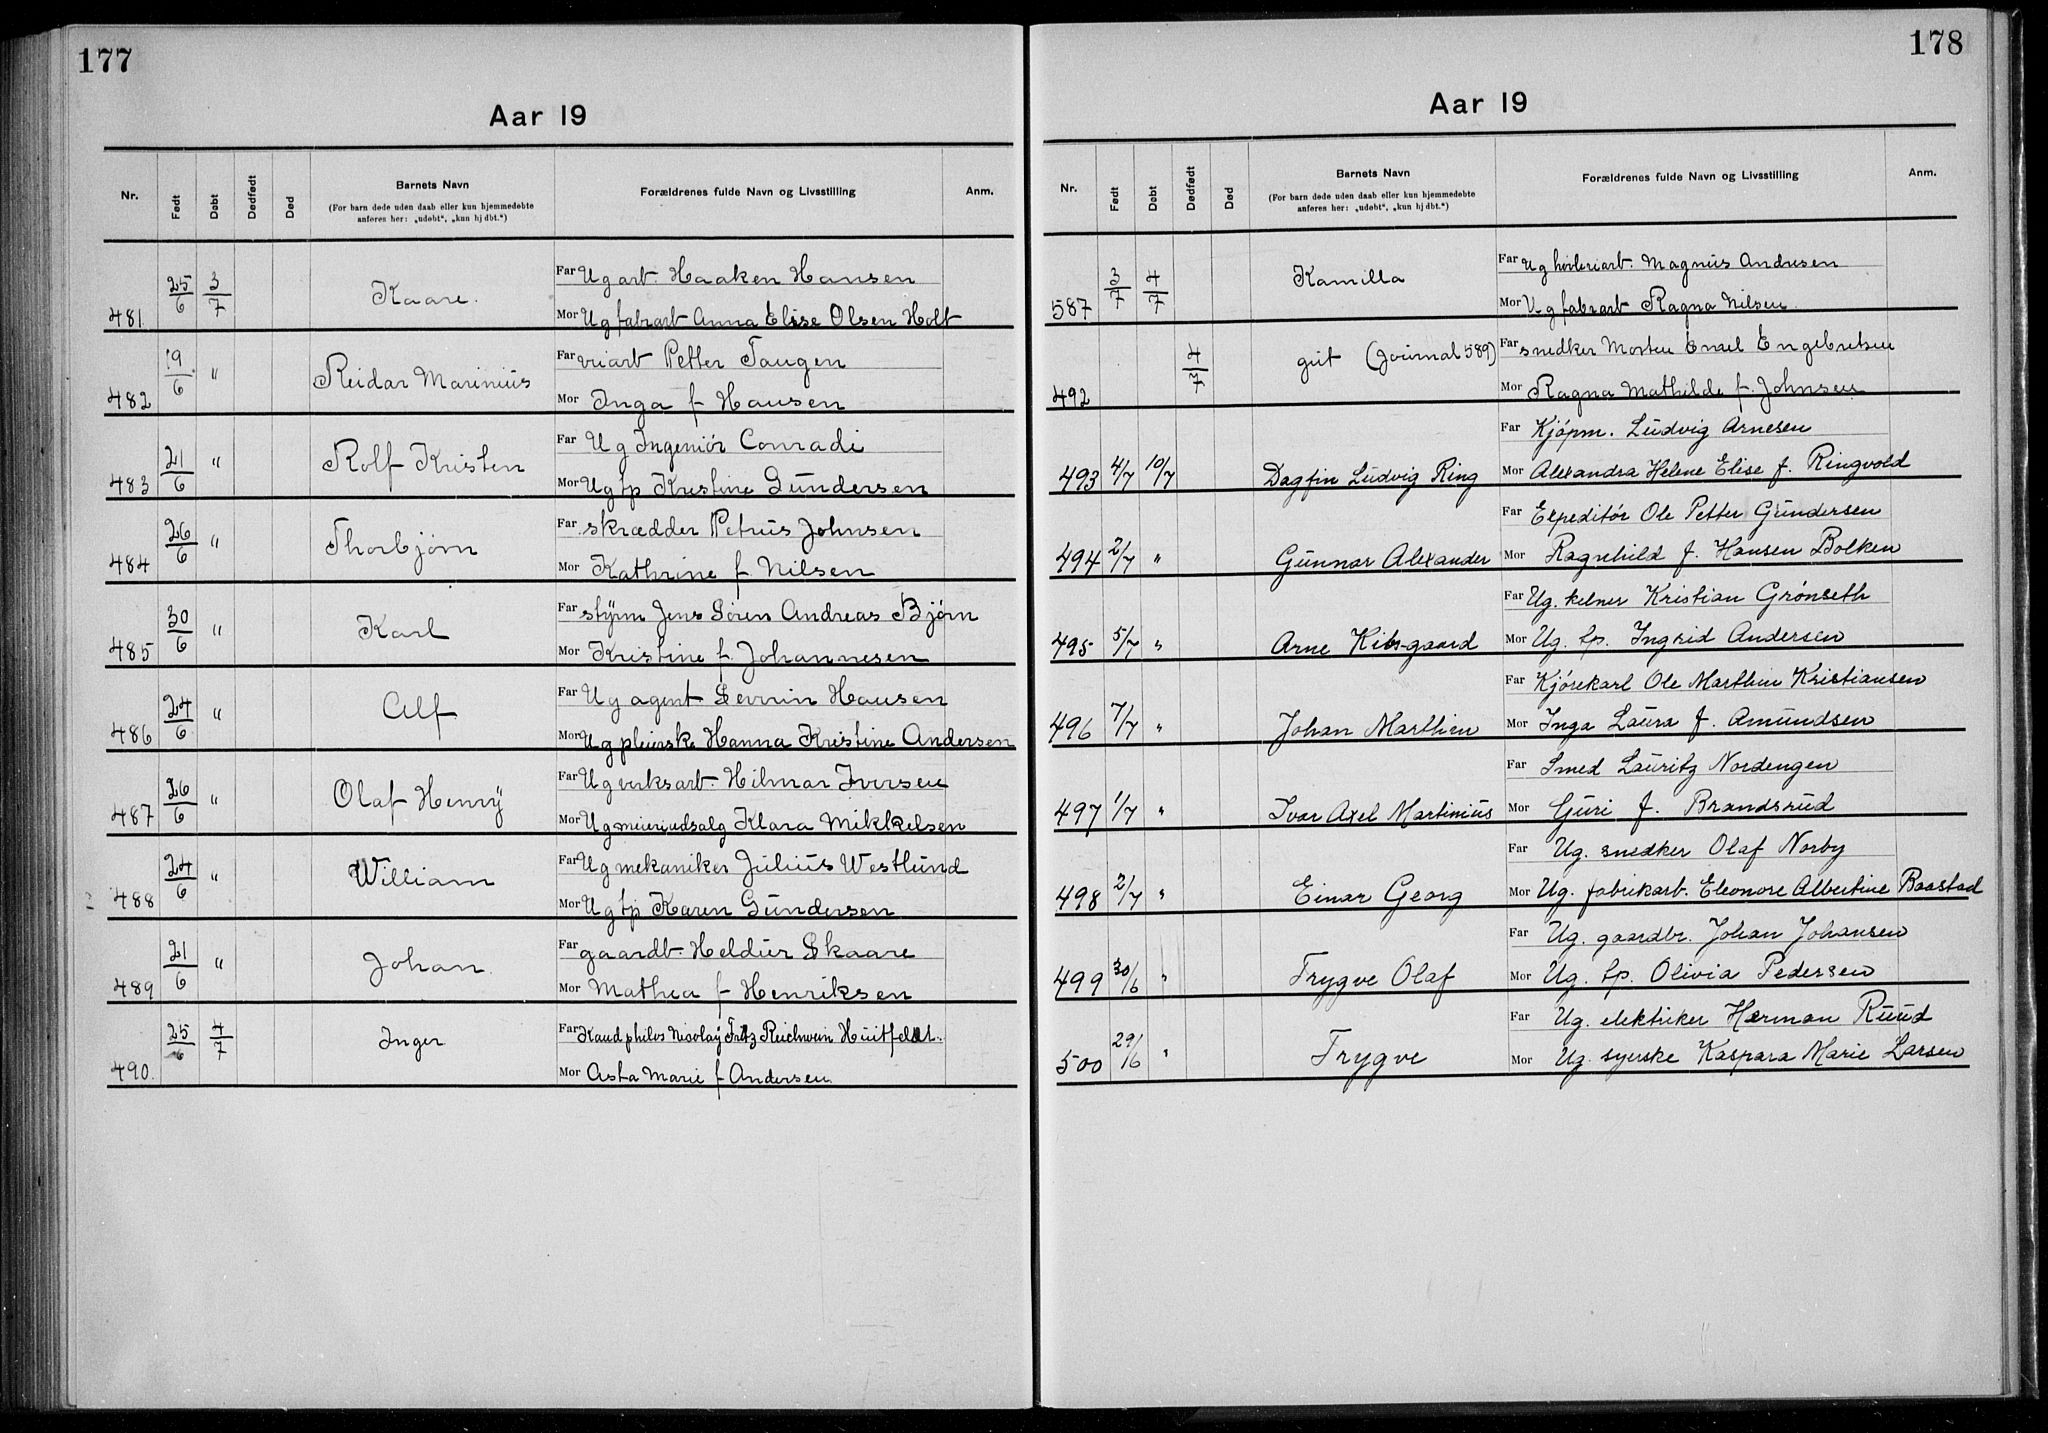 177
Aar 19
Nr. Født Døbt Dødfødt Død Barnets Navn Forældrenes fulde Navn og Livsstilling Anm.
(For barn døde uden daab eller kun hjemmedøbte
anføres her: „udøbt“, „kun hj dbt.“)
481 25/6 3/7 Kaare. Far Ug arb. Haaken Hansen
Mor Ug fabrarb Anna Elise Olsen Holt
482 19/6 " Reidar Marinius Far vriarb Petter Taugen
Mor Inga f Hansen
483 21/6 " Rolf Kristen Far Ug Ingeniør Conradi
Mor Ug tp Kristine Gundersen
484 26/6 " Thorbjørn Far skrædder Petrus Johnsen
Mor Kathrine f. Nilsen
485 30/6 " Karl Far styrm Jens Sören Andreas Bjørn
Mor Kristine f. Johannesen
486 24/6 " Alf Far Ug agent Severin Hansen
Mor Ug pleierske Hanna Kristine Andersen
487 26/6 " Olaf Henry Far Ug verksarb. Hilmar Iversen
Mor Ug meieriudsalg Klara Mikkelsen
488 24/6 " William Far Ug mekaniker Julius Westlund
Mor Ug tp Karen Gundersen
489 21/6 " Johan Far gaardb. Heldur Skaare
Mor Mathea f Henriksen
490. 25/6 4/7 Inger Far Kand philos Nicolay Fritz Reichwein Huitfeldt.
Mor Asta Marie f Andersen
178
Aar 19
Nr. Født Døbt Dødfødt Død Barnets Navn Forældrenes fulde Navn og Livsstilling Anm.
(For barn døde uden daab eller kun hjemmedøbte
anføres her: „udøbt“, „kun hj dbt.“)
587 3/7 4/7 Kamilla Far Ug høvleriarb. Magnus Andresen
Mor Ug fabrarb Ragna Nilsen
492 4/7 gut (Journal 589) Far snedker Morten Emil Engebretsen
Mor Ragna Mathilde f. Johnsen
493 4/7 10/7 Dagfin Ludvig Ring Far Kjøpm. Ludvig Arnesen
Mor Alexandra Helene Elise f. Ringvold
494 2/7 " Gunnar Alexander Far Expeditør Ole Petter Gundersen
Mor Ragnhild f. Hansen Bolken
495 5/7 " Arne Kibsgaard Far Ug. kelner Kristian Grønseth
Mor Ug. tp. Ingrid Andersen
496 7/7 " Johan Marthin Far Kjørekarl Ole Marthin Kristiansen
Mor Inga Laura f. Amundsen
497 1/7 " Ivar Axel Martinius Far Smed Lauritz Nordengen
Mor Guri f. Brandsrud
498 2/7 " Einar Georg Far Ug. snedker Olaf Norby
Mor Ug. fabrikarb. Eleonore Albertine Baastad
499 30/6 " Trygve Olaf Far Ug. gaardbr. Johan Johansen
Mor Ug. tp. Olivia Pedersen
500 29/6 " Trygve Far Ug. elektriker Herman Ruud
Mor Ug. syerske Kaspara Marie Larsen